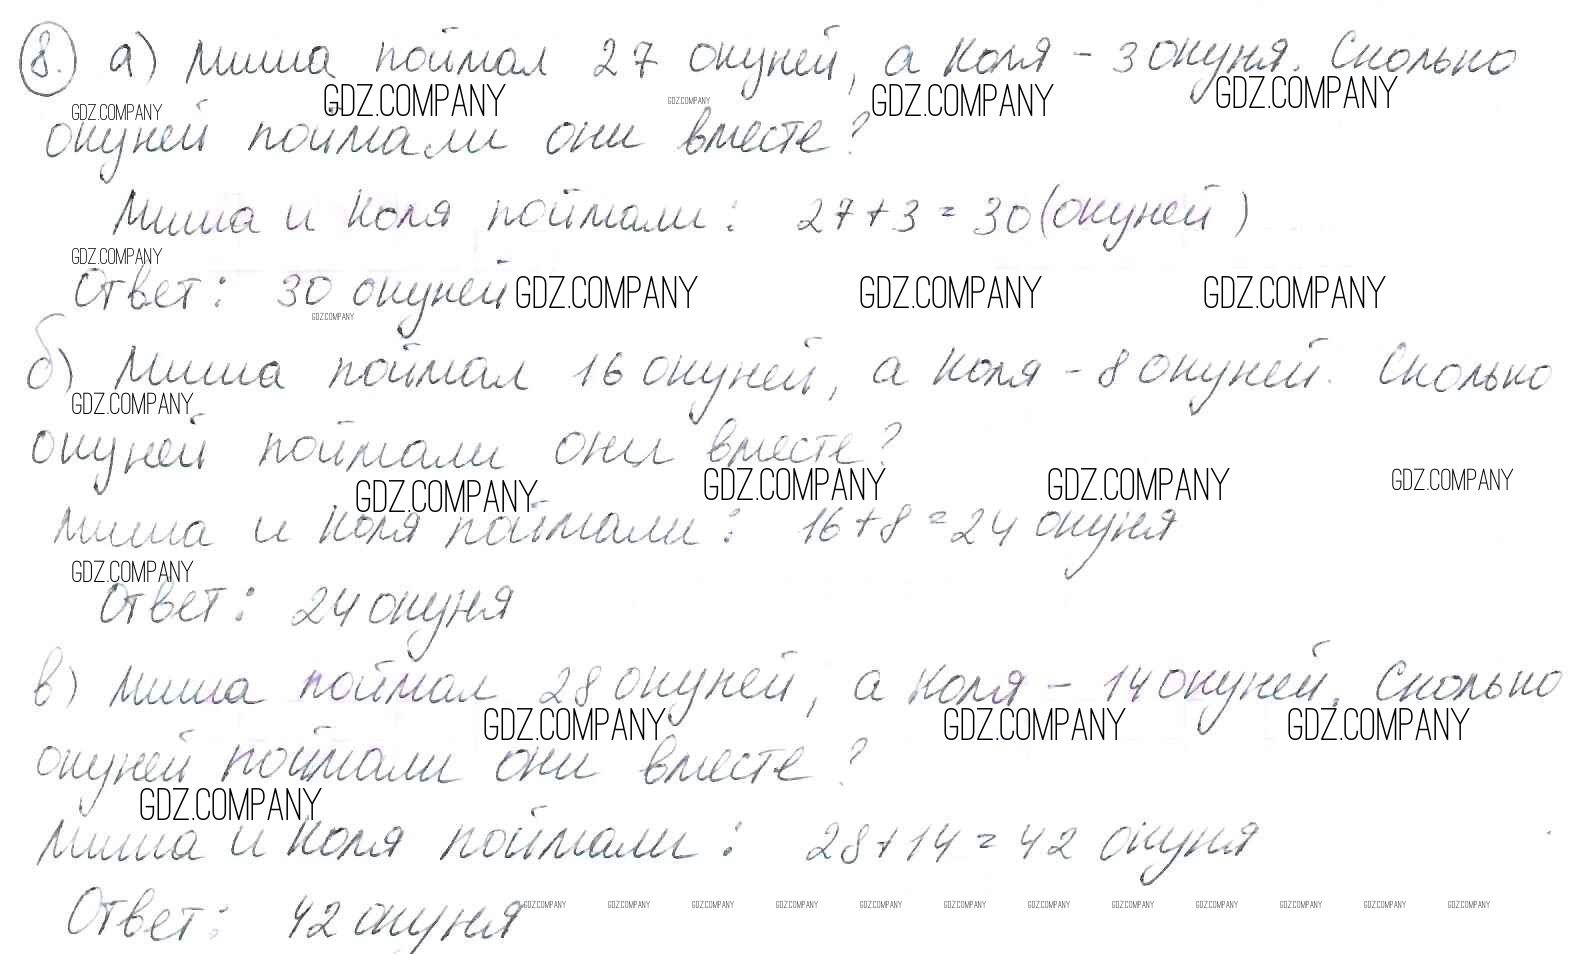 8. а) Миша поймал 27 окуней, а Коля - 3 окуня. Сколько
GDZ.COMPANY GDZ.COMPANY GDZ.COMPANY GDZ.COMPANY GDZ.COMPANY
окуней поймали они вместе?
Миша и Коля поймали: 27+3=30(окуней)
GDZ.COMPANY
Ответ: 30 окуней GDZ.COMPANY GDZ.COMPANY GDZ.COMPANY
GDZ.COMPANY
б) Миша поймал 16 окуней, а Коля - 8 окуней. Сколько
GDZ.COMPANY
окуней поймали они вместе?
GDZ.COMPANY GDZ.COMPANY GDZ.COMPANY GDZ.COMPANY
Миша и Коля поймали: 16+8=24 окуня
GDZ.COMPANY
Ответ: 24 окуня
в) Миша поймал 28 окуней, а Коля - 14 окуней. Сколько
GDZ.COMPANY GDZ.COMPANY GDZ.COMPANY
окуней поймали они вместе?
GDZ.COMPANY
Миша и Коля поймали: 28+14=42 окуня
Ответ: 42 окуня
GDZ.COMPANY GDZ.COMPANY GDZ.COMPANY GDZ.COMPANY GDZ.COMPANY GDZ.COMPANY GDZ.COMPANY GDZ.COMPANY GDZ.COMPANY GDZ.COMPANY GDZ.COMPANY GDZ.COMPANY